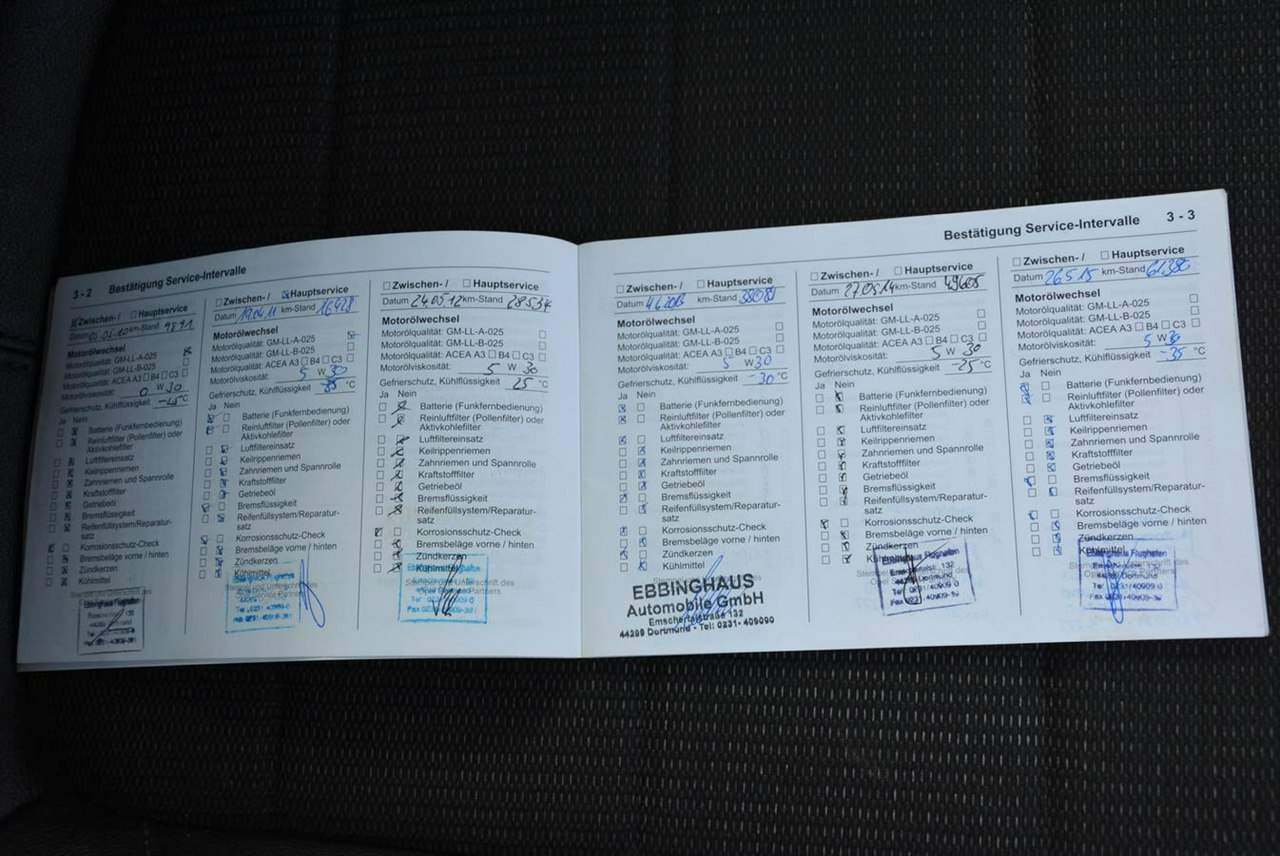 3 - 2 Bestätigung Service-Intervalle
Zwischen- / Hauptservice
km-Stand 9891
Motorölwechsel
Motorölqualität: GM-LL-A-025
Motorölqualität: GM-LL-B-025
Motorölqualität: ACEA A3 B4 C3
Motorölviskosität: 0 W 30
Gefrierschutz, Kühlflüssigkeit -25 °C
Ja Nein
Batterie (Funkfernbedienung)
Reinluftfilter (Pollenfilter) oder
Aktivkohlefilter
Luftfiltereinsatz
Keilrippenriemen
Zahnriemen und Spannrolle
Kraftstofffilter
Getriebeöl
Bremsflüssigkeit
Reifenfüllsystem/Reparatur-
satz
Korrosionsschutz-Check
Bremsbeläge vorne / hinten
Zündkerzen
Kühlmittel
Ebbinghaus Flughafen
Zwischen- / Hauptservice
Datum 19.04.11 km-Stand 16428
Motorölwechsel
Motorölqualität: GM-LL-A-025
Motorölqualität: GM-LL-B-025
Motorölqualität: ACEA A3 B4 C3
Motorölviskosität: 5 W 30
Gefrierschutz, Kühlflüssigkeit °C
Ja Nein
Batterie (Funkfernbedienung)
Reinluftfilter (Pollenfilter) oder
Aktivkohlefilter
Luftfiltereinsatz
Keilrippenriemen
Zahnriemen und Spannrolle
Kraftstofffilter
Getriebeöl
Bremsflüssigkeit
Reifenfüllsystem/Reparatur-
satz
Korrosionsschutz-Check
Bremsbeläge vorne / hinten
Zündkerzen
Kühlmittel
Zwischen- / Hauptservice
Datum 24.05.12 km-Stand 28534
Motorölwechsel
Motorölqualität: GM-LL-A-025
Motorölqualität: GM-LL-B-025
Motorölqualität: ACEA A3 B4 C3
Motorölviskosität: 5 W 30
Gefrierschutz, Kühlflüssigkeit 25 °C
Ja Nein
Batterie (Funkfernbedienung)
Reinluftfilter (Pollenfilter) oder
Aktivkohlefilter
Luftfiltereinsatz
Keilrippenriemen
Zahnriemen und Spannrolle
Kraftstofffilter
Getriebeöl
Bremsflüssigkeit
Reifenfüllsystem/Reparatur-
satz
Korrosionsschutz-Check
Bremsbeläge vorne / hinten
Zündkerzen
Kühlmittel
Bestätigung Service-Intervalle 3 - 3
Zwischen- / Hauptservice
Datum km-Stand
Motorölwechsel
Motorölqualität: GM-LL-A-025
Motorölqualität: GM-LL-B-025
Motorölqualität: ACEA A3 B4 C3
Motorölviskosität: 5 W 30
Gefrierschutz, Kühlflüssigkeit -30 °C
Ja Nein
Batterie (Funkfernbedienung)
Reinluftfilter (Pollenfilter) oder
Aktivkohlefilter
Luftfiltereinsatz
Keilrippenriemen
Zahnriemen und Spannrolle
Kraftstofffilter
Getriebeöl
Bremsflüssigkeit
Reifenfüllsystem/Reparatur-
satz
Korrosionsschutz-Check
Bremsbeläge vorne / hinten
Zündkerzen
Kühlmittel
EBBINGHAUS
Automobile GmbH
Emschertalstraße 132
44289 Dortmund - Tel: 0231-409090
Zwischen- / Hauptservice
Datum 27.05.14 km-Stand 49605
Motorölwechsel
Motorölqualität: GM-LL-A-025
Motorölqualität: GM-LL-B-025
Motorölqualität: ACEA A3 B4 C3
Motorölviskosität: 5 W 30
Gefrierschutz, Kühlflüssigkeit -25 °C
Ja Nein
Batterie (Funkfernbedienung)
Reinluftfilter (Pollenfilter) oder
Aktivkohlefilter
Luftfiltereinsatz
Keilrippenriemen
Zahnriemen und Spannrolle
Kraftstofffilter
Getriebeöl
Bremsflüssigkeit
Reifenfüllsystem/Reparatur-
satz
Korrosionsschutz-Check
Bremsbeläge vorne / hinten
Zündkerzen
Kühlmittel
Zwischen- / Hauptservice
Datum 26.5.15 km-Stand 61380
Motorölwechsel
Motorölqualität: GM-LL-A-025
Motorölqualität: GM-LL-B-025
Motorölqualität: ACEA A3 B4 C3
Motorölviskosität: 5 W 30
Gefrierschutz, Kühlflüssigkeit -35 °C
Ja Nein
Batterie (Funkfernbedienung)
Reinluftfilter (Pollenfilter) oder
Aktivkohlefilter
Luftfiltereinsatz
Keilrippenriemen
Zahnriemen und Spannrolle
Kraftstofffilter
Getriebeöl
Bremsflüssigkeit
Reifenfüllsystem/Reparatur-
satz
Korrosionsschutz-Check
Bremsbeläge vorne / hinten
Zündkerzen
Kühlmittel